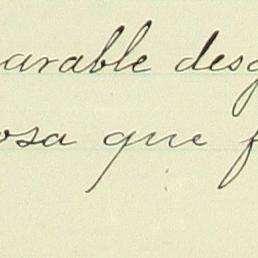 arable desg
osa que f